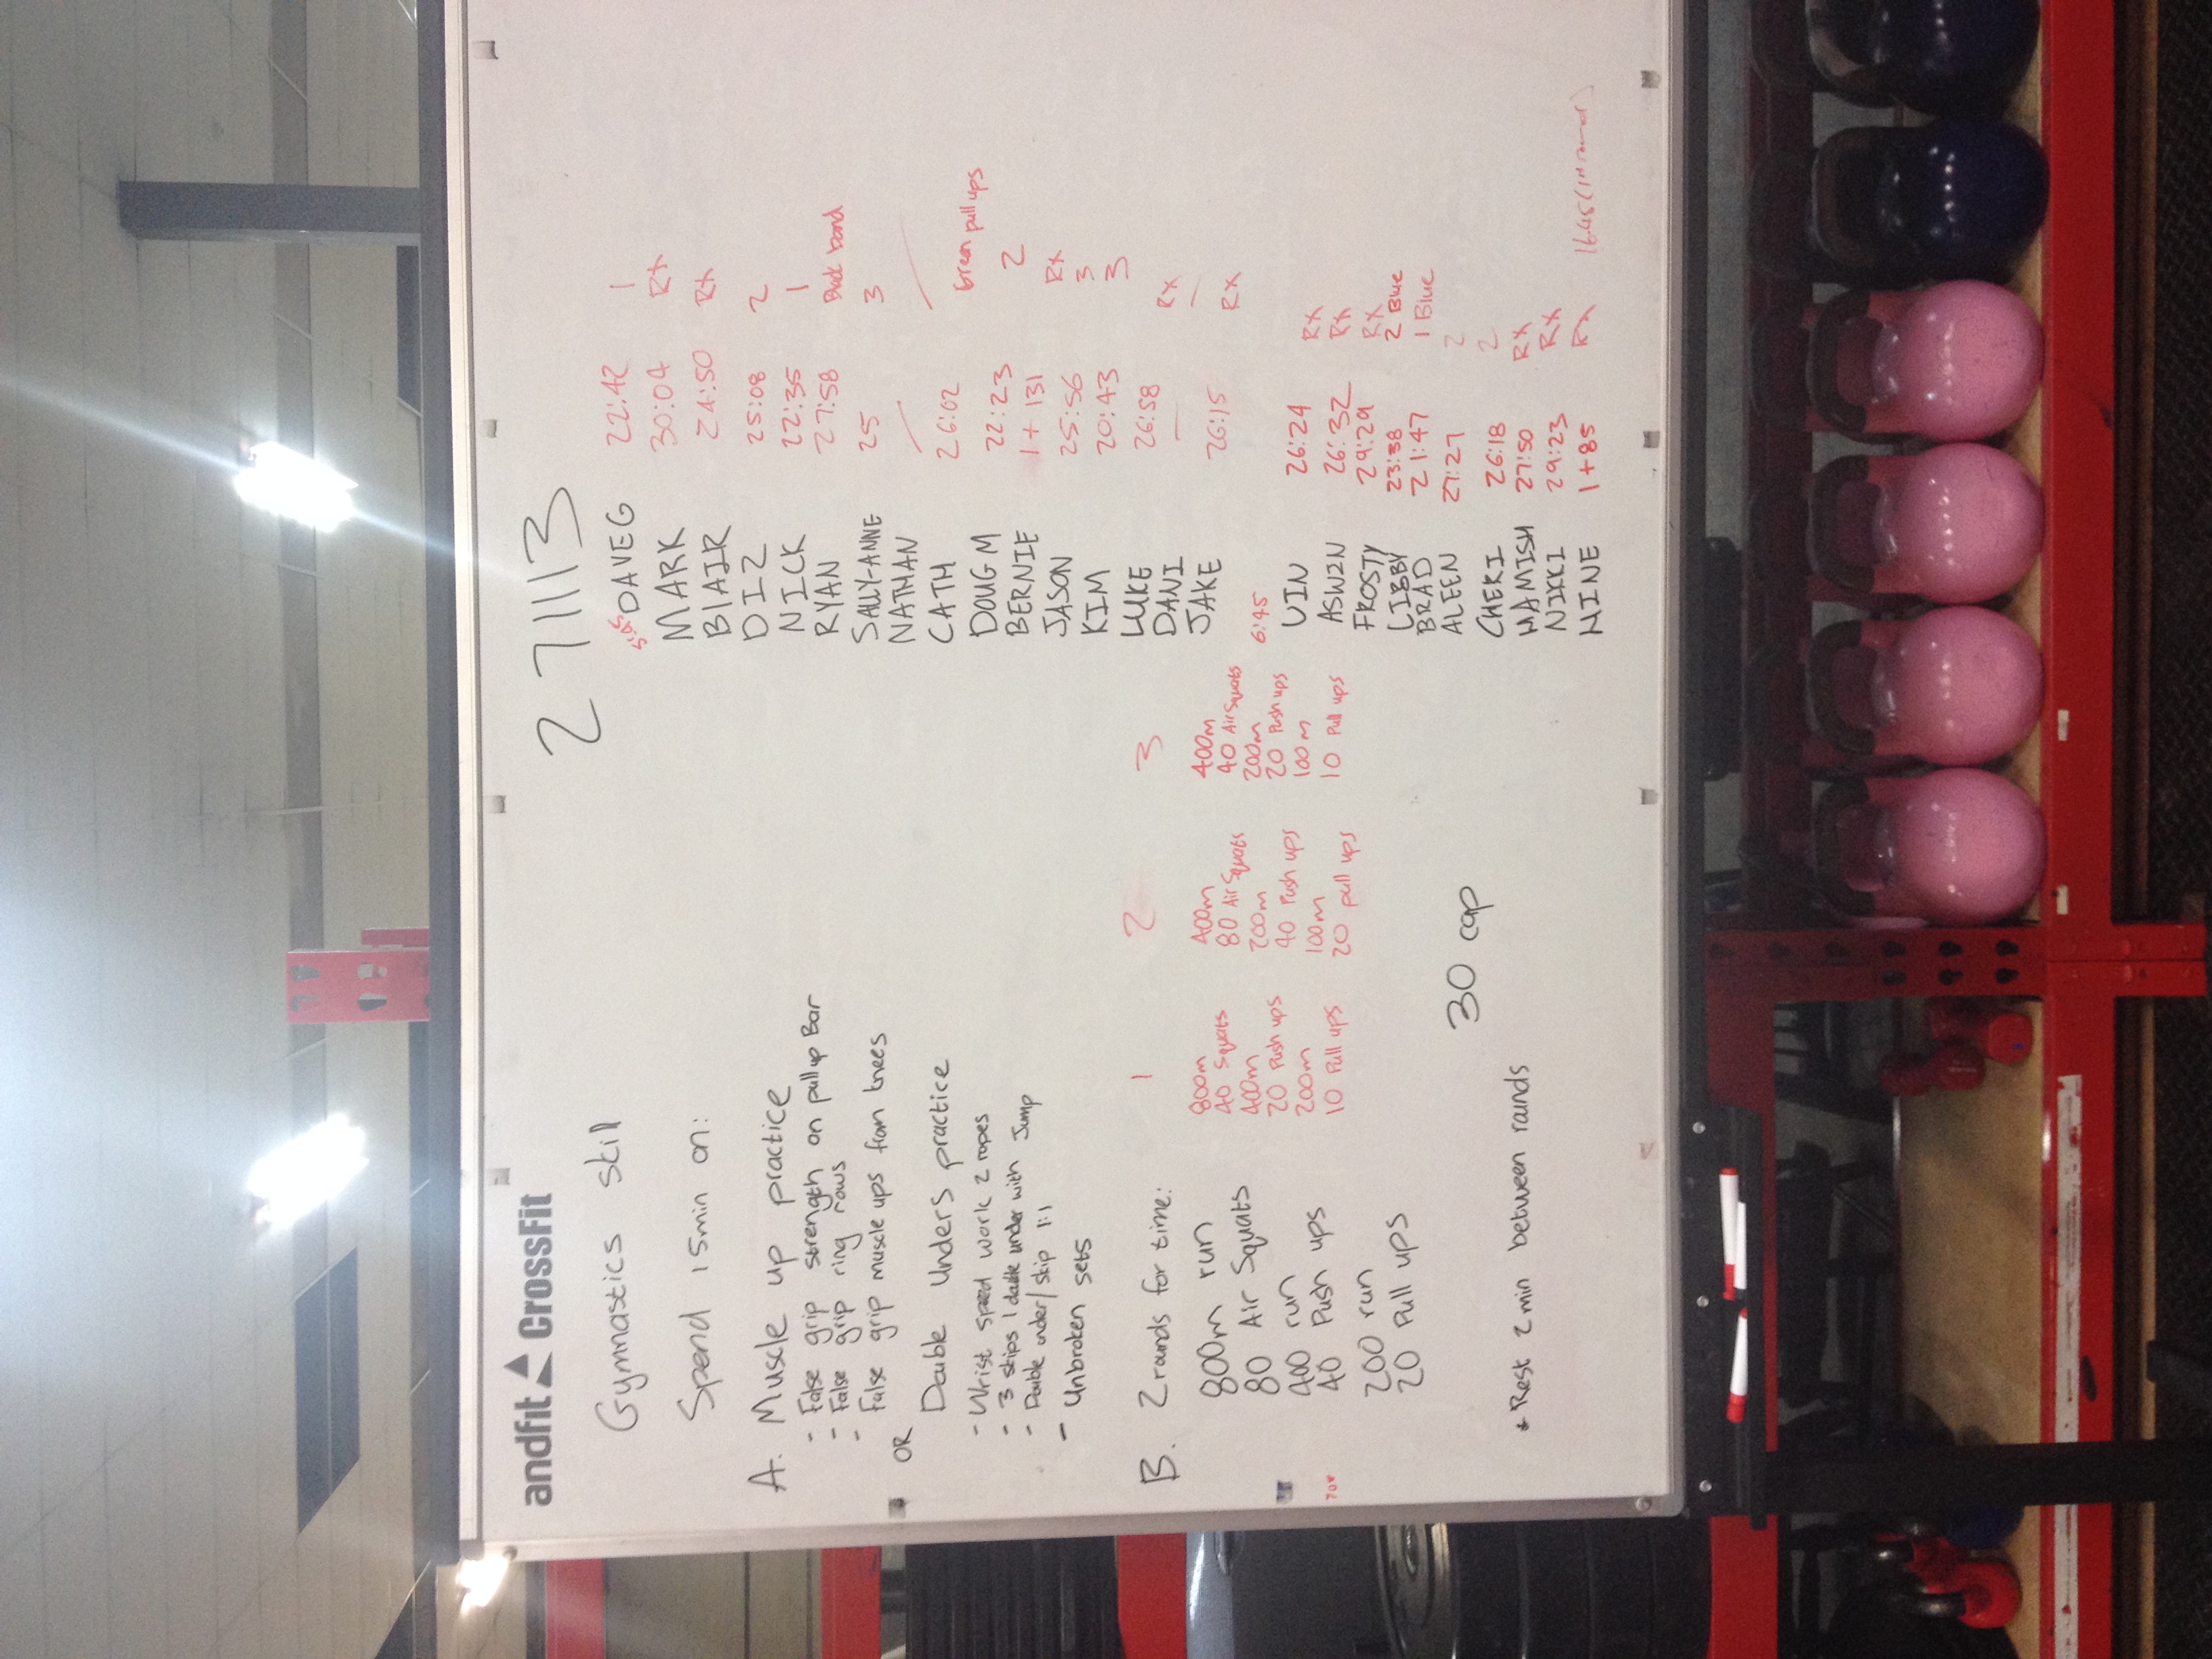 andfit CrossFit
27/11/13
Gymnastics skill
Spend 15min on:
A. Muscle up practice
- False grip strength on pull up Bar
- False grip ring rows
- False grip muscle ups from knees
OR
Double Unders practice
- Wrist speed work 2 ropes
- 3 skips 1 double under with Jump
- Double under/skip 1:1
- Unbroken sets
B. 2 rounds for time:
800m run
80 Air Squats
400 run
40 Push ups
200 run
20 Pull ups
* Rest 2 min between rounds
30 cap
1
800m
40 Squats
400m
20 Push ups
200m
10 Pull ups
2
400m
80 Air Squats
200m
40 Push ups
100m
20 pull ups
3
400m
40 Air Squats
200m
20 Push ups
100m
10 Pull ups
5:45
DAVEG 22:42 1
MARK 30:04 Rx
BLAIR 24:50 Rx
DIZ 25:08 2
NICK 22:35 1
RYAN 27:58 band
SALLY-ANNE 25 3
NATHAN
CATH 26:02 green pull ups
DOUG M 22:23 2
BERNIE 1+131
JASON 25:56 Rx
KIM 20:43 3
3
LUKE 26:58 Rx
DANI —
JAKE 26:15 Rx
6:45
VIN 26:24 Rx
ASWIN 26:32 Rx
FROSTY 29:29 Rx
LIBBY 23:38 2 Blue
BRAD 21:47 1 Blue
ALEEN 27:27 2
CHEKI 26:18 2
HAMISH 27:50 Rx
NIKKI 29:23 Rx
NINE 1+85 Rx